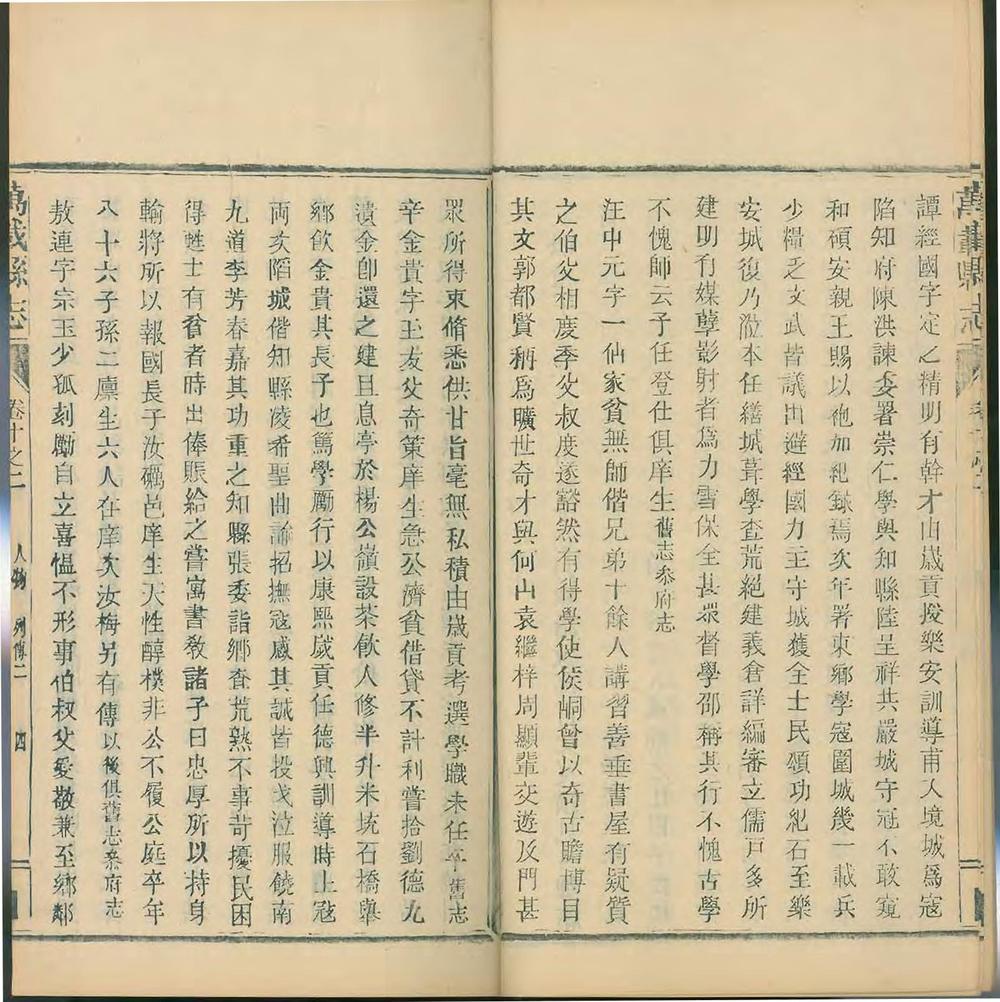 譚經國字定之精明有幹才由歲貢授樂安訓導甫入境城爲寇
陷知府陳洪諫委署崇仁學與知縣陸呈祥共嚴城守冦不敢窺
和碩安親王賜以袍加紀錄焉次年署東鄉學寇圍城幾一載兵
少糧乏文武皆議出避經國力主守城獲全士民頌功紀石至樂
安城復乃涖本任繕城葺學查荒絕建義倉詳編審立儒戸多所
建明有媒孽影射者爲力雪保全甚眾督學邵稱其行不愧古學
不愧師云子任登仕俱庠生舊志叅府志
汪中元字一仙家貧無師偕兄弟十餘人講習善垂書屋有疑質
之伯父相度季父叔度遂豁然有得學使侯峒曾以奇古贍博目
其文郭都賢稱爲曠世奇才與何山袁繼梓周顯輩交遊及門甚
眾所得束脩悉供甘旨毫無私積由歲貢考選學職未任卒舊志
辛金貴字玉友父奇策庠生急公濟貧借貸不計利嘗拾劉德九
潰金卽還之建且息亭於楊公嶺設茶飮人修半升米坑石橋舉
鄉飮金貴其長子也篤學勵行以康熙歲貢任德興訓導時土冦
両次陷城偕知縣淩希聖曲諭招撫寇感其誠皆投戈泣服饒南
九道李芳春嘉其功重之知縣張委詣鄉查荒熟不事苛擾民困
得甦士有貧者時出俸賑給之嘗寓書敎諸子曰忠厚所以持身
輸將所以報國長子汝礪邑庠生天性醇樸非公不履公庭卒年
八十六子孫二廩生六人在庠次汝梅另有傳以後俱舊志叅府志
敖連字宗玉少孤刻勵自立喜慍不形事伯叔父愛敬兼至鄉鄰
萬載縣志
卷十之二
人物
列傳二
四